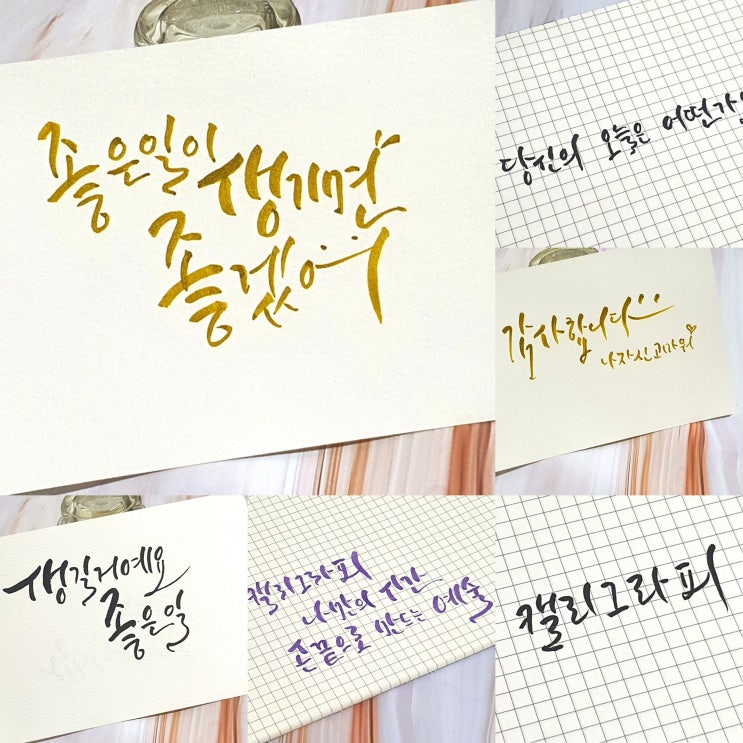 좋은일이 생기면
좋겠어
당신의 오늘은 어떤가요
감사합니다
나자신고마워
생길거예요
좋은일
캘리그라피
나만의 시간
손끝으로 만드는 예술
캘리그라피